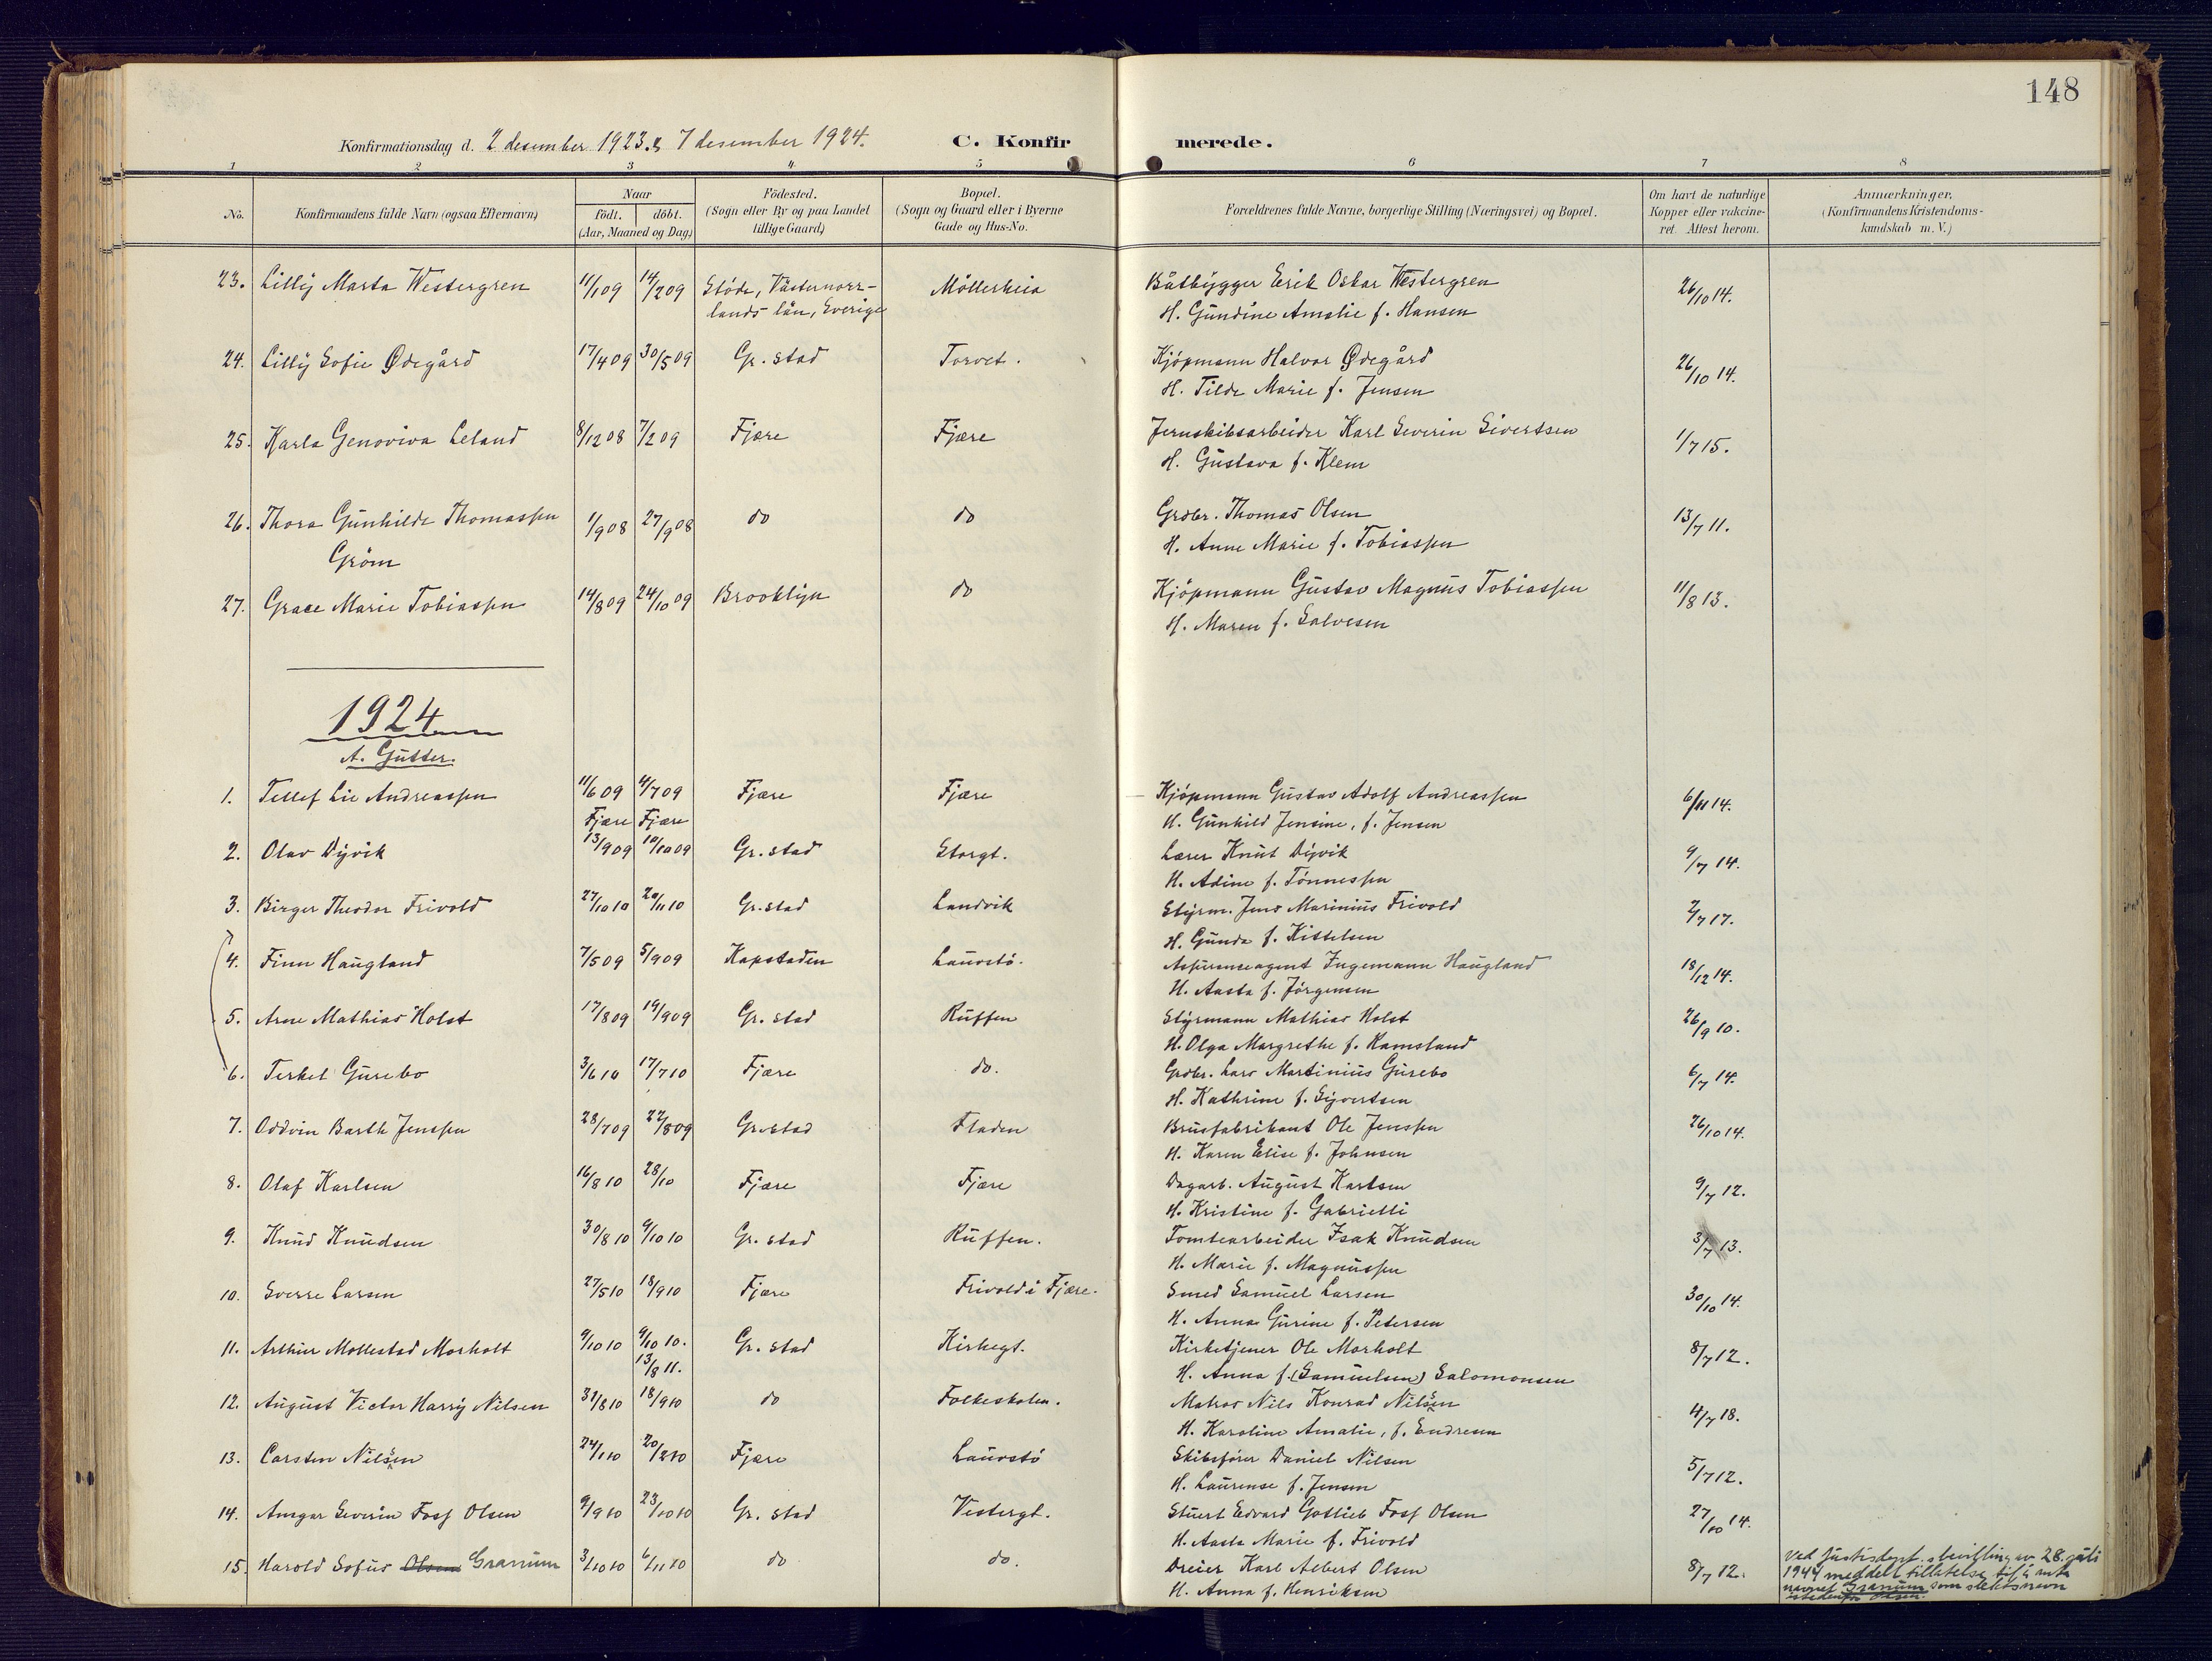 148
Konfirmationsdag d. 2 desember 1923. & 7 desember 1924. C. Konfirmerede.
1 2 3 4. 5 6 7 8
No. Konfirmandens fulde Navn (ogsaa Efternavn) Naar født. døbt. (Aar, Maaned og Dag) Födested. (Sogn eller By og paa Landet tillige Gaard) Bopæl. (Sogn og Gaard eller i Byerne Gade og Hus-No. Forældrenes fulde Navne, borgerlige Stilling (Næringsvei) og Bopæl. Om havt de naturlige Kopper eller vakcineret. Attest herom. Anmærkninger, (Konfirmandens Kristendomskundskab m. V.)
23. Lilly Marta Westergren 11/1 09 14/2 09 Stöde, Västernorr- Møllerheia Båtbygger Erik Oskar Westergren 26/10 14.
lands län, Sverige H. Gundine Amalie f. Hansen
24. Lilly Sofie Ødegård 17/4 09 30/5 09 Gr. stad Torvet. Kjøpmann Halvor Ødegård 26/10 14.
H. Tilda Marie f. Jensen
25. Karla Genoviva Leland 8/12 08 7/2 09 Fjære Fjære Jernskibsarbeider Karl Severin Sivertsen 1/7 15.
H. Gustava f. Klem
26. Thora Gunhilde Thomassen 1/9 08 27/9 08 do do Grdbr. Thomas Olsen 13/7 11.
Grøm H. Anne Marie f. Tobiassen
27. Grace Marie Tobiassen 14/8 09 24/10 09 Brooklyn do Kjøpmann Gustav Magnus Tobiassen 11/8 13.
H. Maren f. Salvesen
1924
A. Gutter.
1. Tellef Lie Andreassen 11/6 09 4/7 09 Fjære Fjære Kjøpmann Gustav Adolf Andreassen 6/11 14.
Fjære Fjære H. Gunhild Jensine, f. Jensen
2. Olav Dyvik 13/9 09 10/10 09 Gr. stad Storgt. Lærer Knut Dyvik 9/7 14.
H. Adine f. Tønnessen
3. Birger Theodor Frivold 27/10 10 20/11 10 Gr. stad Landvik Styrm. Jens Marinius Frivold 2/7 17.
H. Gunda f. Kittelsen
4. Finn Haugland 7/5 09 5/9 09 Kapstaden Laurstø. Assuranceagent Ingemann Haugland 18/12 14.
H. Aasta f. Jørgensen
5. Arne Mathias Holst 17/8 09 19/9 09 Gr. stad Ruffen Styrmann Mathias Holst 26/9 10.
H. Olga Margrethe f. Ramsland
6. Terkel Gurebo 3/6 10 17/7 10 Fjære do. Grdbr. Lars Martinius Gurebo 6/7 14.
H. Kathrine f. Syvertsen
7. Oddvin Barth Jenssen 28/7 09 22/8 09 Gr. stad Fladen Brusfabrikant Ole Jenssen 26/10 14.
H. Karen Elise f. Johnsen
8. Olaf Karlsen 16/8 10 28/10 Fjære Fjære Dagarb. August Karlsen 9/7 12.
H. Kristine f. Gabrielli
9. Knud Knudsen 30/8 10 9/10 10 Gr. stad Ruffen. Tomtearbeider Isak Knudsen 3/7 13.
H. Marie f. Magnussen
10. Sverre Larsen 27/5 10 18/9 10 Fjære Frivold i Fjære. Smed Samuel Larsen 30/10 14.
H. Anna Gurine f. Petersen
11. Arthur Mollestad Morholt 9/10 10 9/10 10. Gr. stad Kirkegt. Kirketjener Ole Morholt 8/7 12.
13/8 11. H. Anna f. (Samuelsen) Salomonsen
12. August Victor Harry Nilsen 31/8 10 18/9 10 do Folkeskolen. Matros Nils Konrad Nilssen 4/7 18.
H. Karoline Amalie, f. Endresen
13. Carsten Nilssen 24/1 10 20/2 10 Fjære Laurstø Skibsfører Daniel Nilsen 5/7 12.
H. Laurense f. Jensen
14. Ansgar Severin Foss Olsen 9/9 10 23/10 10 Gr. stad Vestergt. Stuert Edvard Gottlieb Foss Olsen 27/10 14.
H. Aasta Marie f. Frivold
15. Harold Sofus Olsen Granum 3/10 10 6/11 10 do do. Dreier Karl Albert Olsen 8/7 12. Ved Justisdept. s bevilling av 28. juli
H. Anna f. Henriksen 1944 meddelt tillatelse til å anta
navnet Granum som slektsnavn
istedenfor Olsen.